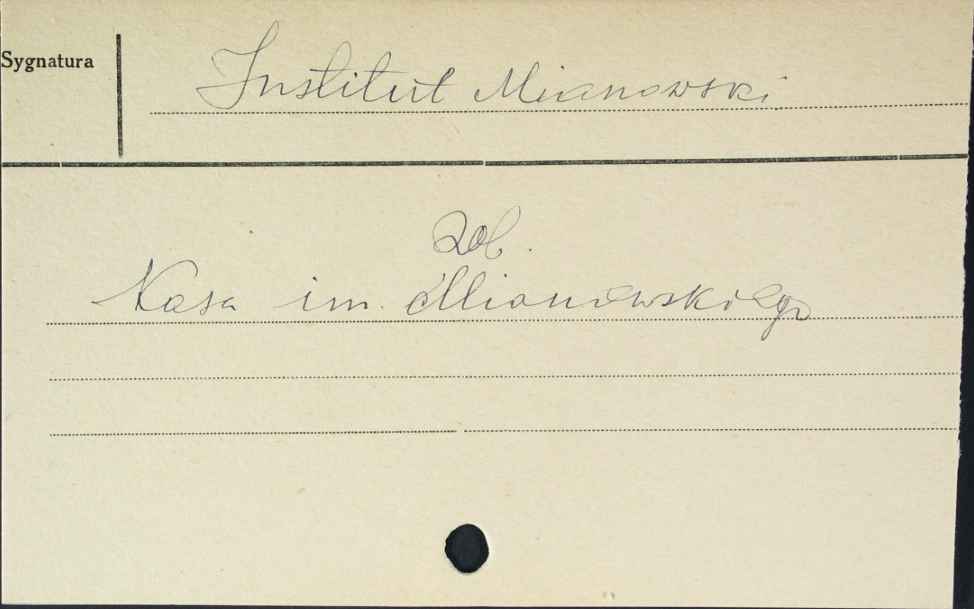 Sygnatura
Institut Mianowski
Zob.
Kasa im. Mianowskiego